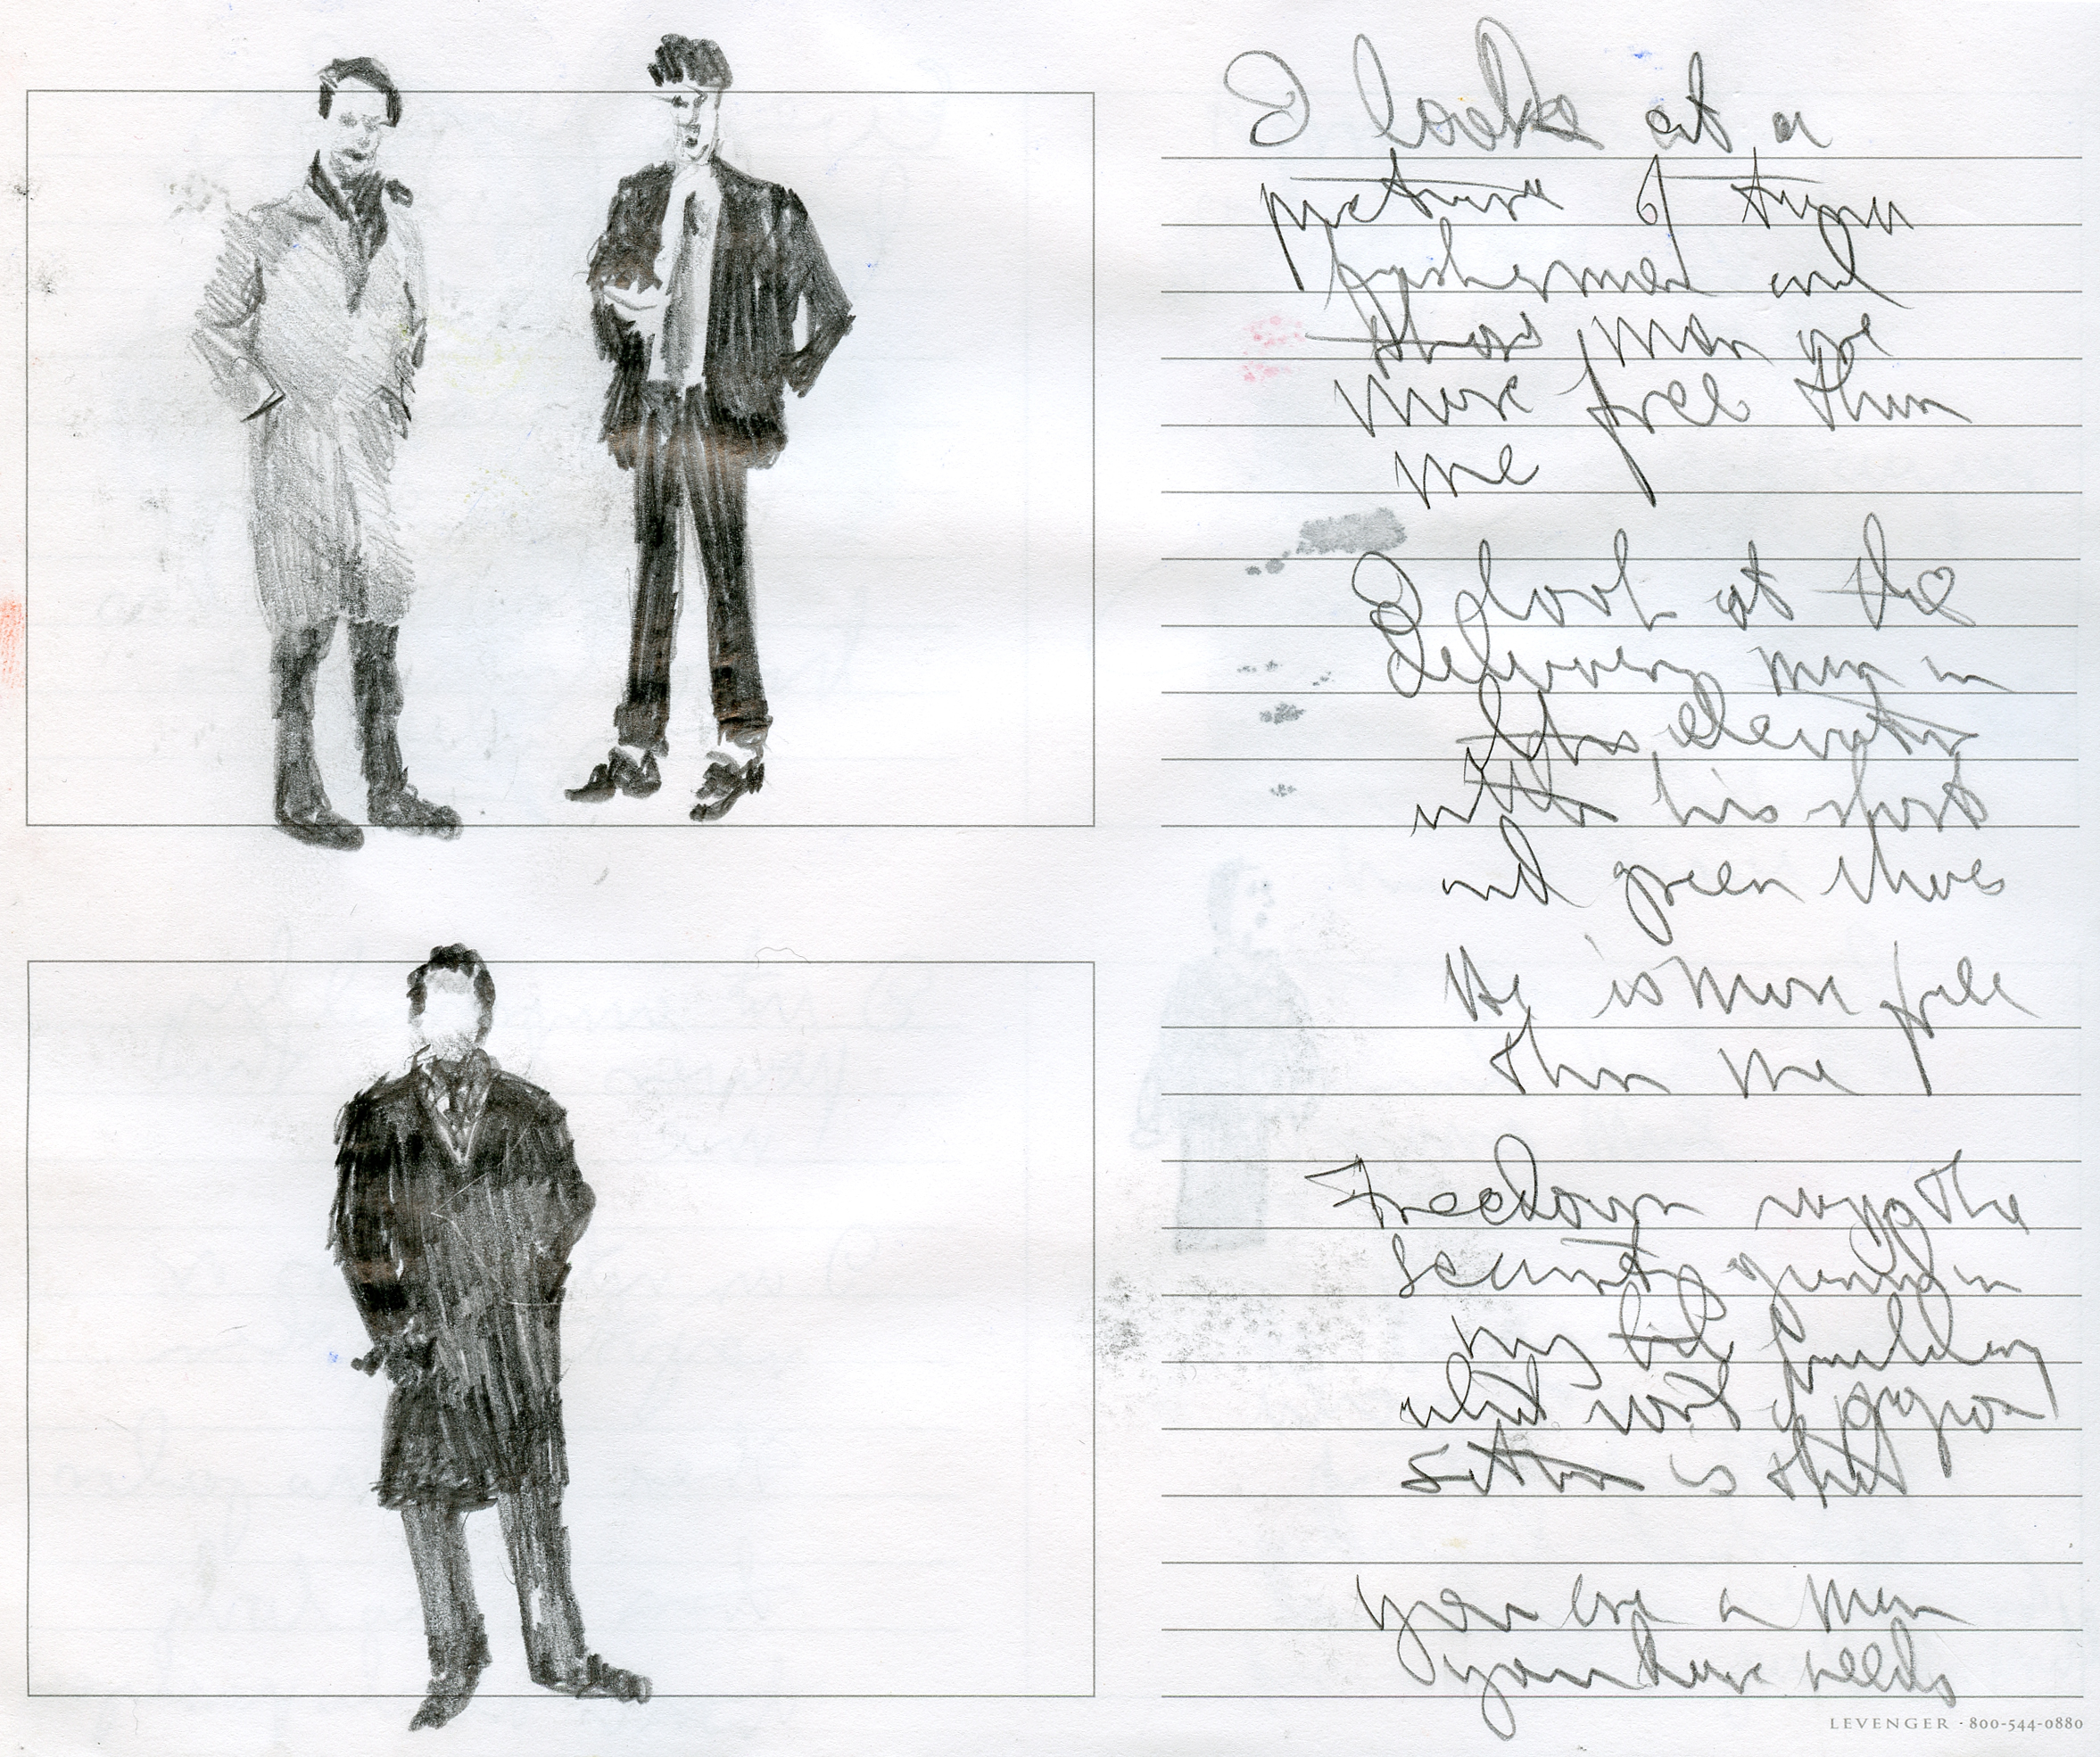 I look at a
picture of tuna
fishermen and
those men are
more free than
me
I look at the
delivery man in
the elevator
with his short
and green shoes
He is more free
than me
Freedom says the
security guard in
my building
what sort of
is that
you are a man
you have needs
LEVENGER · 800-544-0880